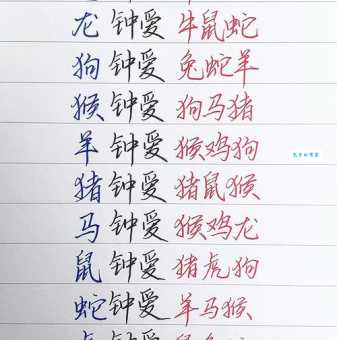 龙 钟爱 牛鼠蛇
狗 钟爱 兔蛇羊
猴 钟爱 狗马猪
羊 钟爱 猴鸡狗
猪 钟爱 猪鼠猴
马 钟爱 猴鸡龙
鼠 钟爱 猪虎狗
蛇 钟爱 羊马猴